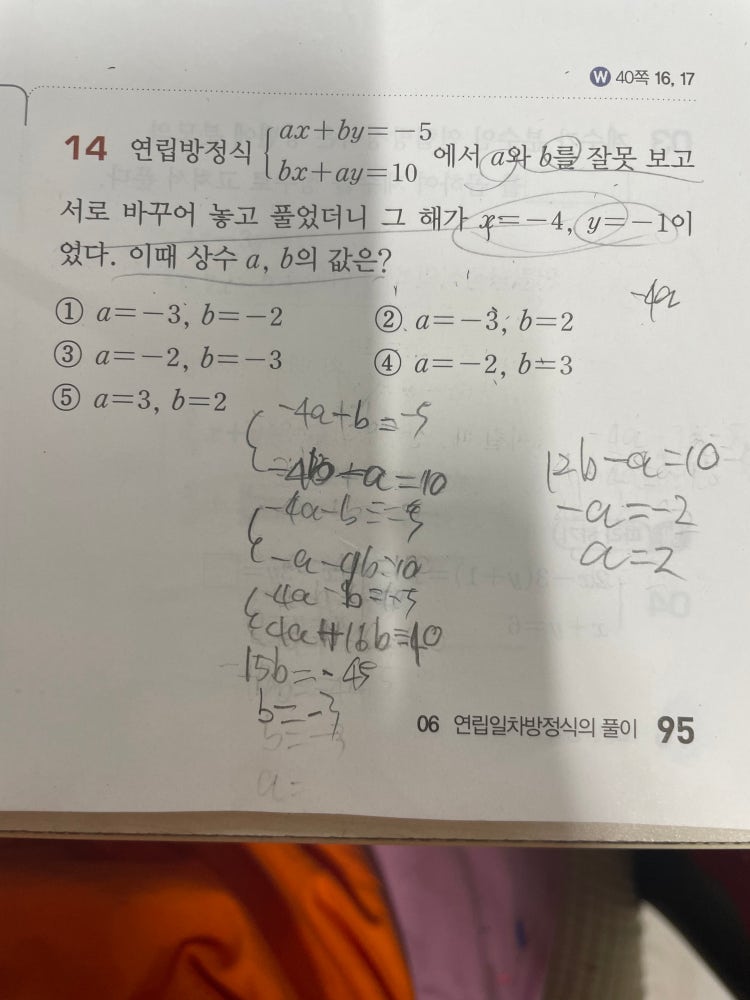 W 40쪽 16, 17
14 연립방정식 { ax+by=-5 에서 a와 b를 잘못 보고
bx+ay=10
서로 바꾸어 놓고 풀었더니 그 해가 x=-4, y=-1이
었다. 이때 상수 a, b의 값은?
-4a
① a=-3, b=-2 ② a=-3, b=2
③ a=-2, b=-3 ④ a=-2, b=3
⑤ a=3, b=2
-4a+b=-5
-a=10
12b-a=10
-a=-2
a=2
-4a-b=-5
-a-4b=10
4a+16b=40
15b=-45
b=-3
b=-3
a=
06 연립일차방정식의 풀이 95